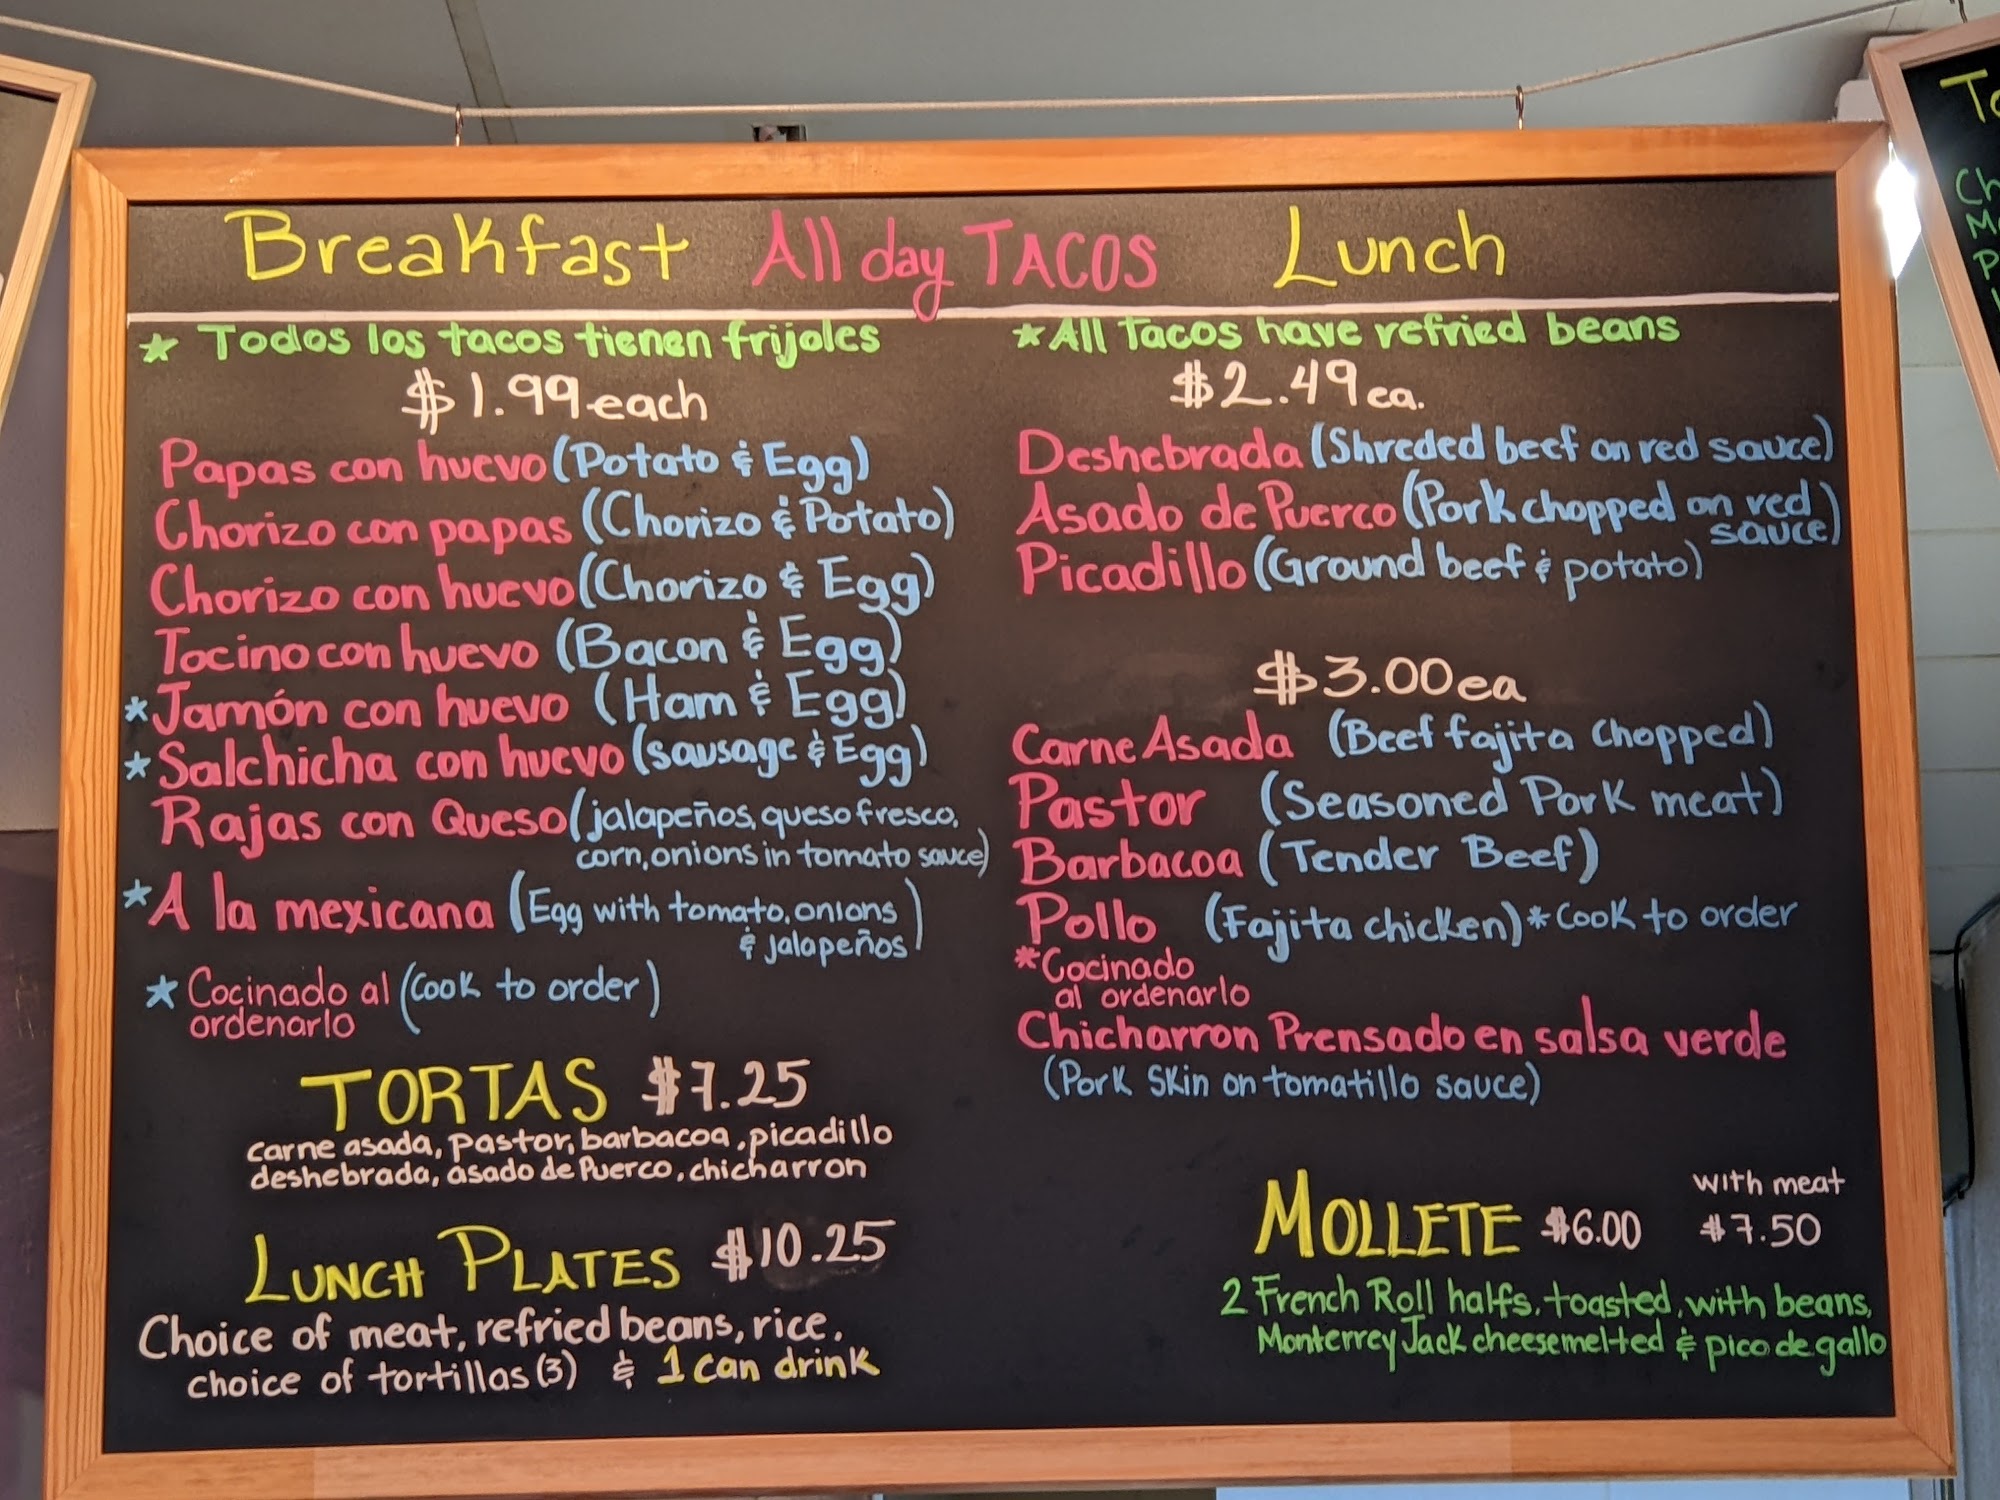 Breakfast All day TACOS Lunch
★ Todos los tacos tienen frijoles
$1.99 each
Papas con huevo (Potato & Egg)
Chorizo con papas (Chorizo & Potato)
Chorizo con huevo (Chorizo & Egg)
Tocino con huevo (Bacon & Egg)
★ Jamón con huevo (Ham & Egg)
★ Salchicha con huevo (sausage & Egg)
Rajas con Queso (jalapeños, queso fresco,
corn, onions in tomato sauce)
★ A la mexicana (Egg with tomato, onions
& jalapeños)
★ Cocinado al (Cook to order)
ordenarlo
TORTAS $7.25
carne asada, pastor, barbacoa, picadillo
deshebrada, asado de Puerco, chicharron
LUNCH PLATES $10.25
Choice of meat, refried beans, rice,
choice of tortillas (3) & 1 can drink
★ All tacos have refried beans
$2.49 ea.
Deshebrada (Shreded beef on red sauce)
Asado de Puerco (Pork chopped on red
sauce)
Picadillo (Ground beef & potato)
$3.00 ea
Carne Asada (Beef fajita chopped)
Pastor (Seasoned Pork meat)
Barbacoa (Tender Beef)
Pollo (Fajita chicken) * Cook to order
* Cocinado
al ordenarlo
Chicharron Prensado en salsa verde
(Pork Skin on tomatillo sauce)
with meat
MOLLETE $6.00 $7.50
2 French Roll halfs, toasted, with beans,
Monterrey Jack cheese melted & pico de gallo